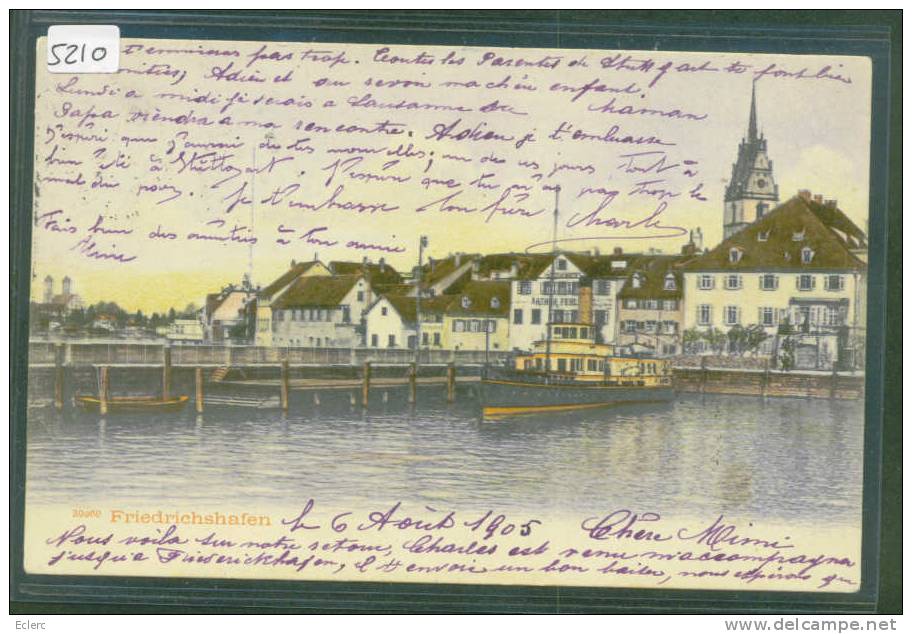 5210
t'ennuieras pas trop. Toutes les Parentes de Stuttgart te font bien
amitiés, Adieu et au revoir ma chère enfant.
Lundi a midi je serais a Lausanne Maman
Papa viendra a ma rencontre. Adieu je t'embrasse
J'espère que j'aurai de tes nouvelles, un de ces jours Tout a
bien été à Stuttgart. J'espère que tu m'as pas trop le
mal du pays. Je t'embrasse ton frère Charle
Fais bien des amitiés à ton amie
Mimi
ARTHUR
30960 Friedrichshafen
le 6 Août 1905 Chère Mimi
Nous voila sur notre retour, Charles est venu m'accompagner
jusqu'a Friederickhafen, il t'envoie un bon baiser, nous espérons que
Eclerc
www.delcampe.net